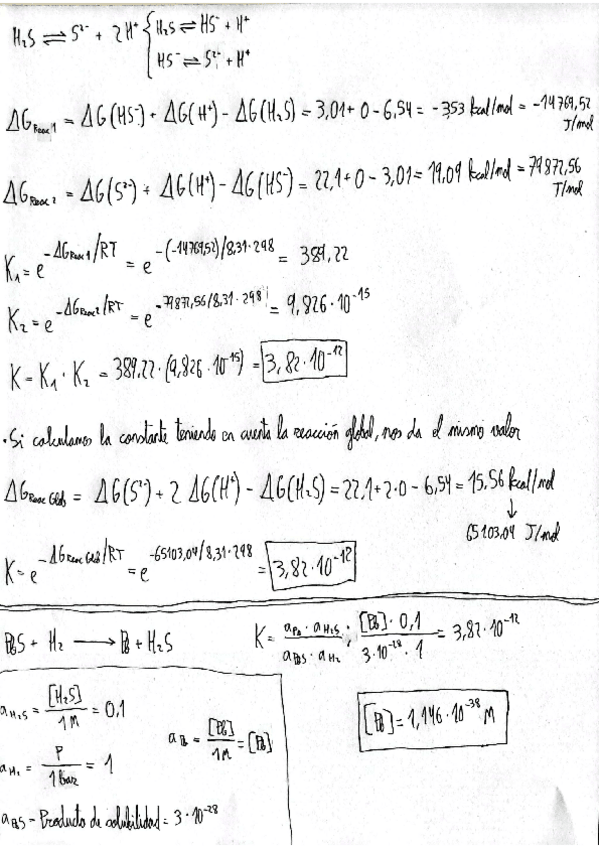 H₂S ⇌ S²⁻ + 2H⁺ { H₂S ⇌ HS⁻ + H⁺
HS⁻ ⇌ S²⁻ + H⁺
ΔG_Reac 1 = ΔG(HS⁻) + ΔG(H⁺) - ΔG(H₂S) = 3,01 + 0 - 6,54 = -3,53 kcal/mol = -14769,52 J/mol
ΔG_Reac 2 = ΔG(S²⁻) + ΔG(H⁺) - ΔG(HS⁻) = 22,1 + 0 - 3,01 = 19,09 kcal/mol = 79872,56 J/mol
K₁ = e^(-ΔG_Reac 1/RT) = e^(-(-14769,52)/8,31·298) = 389,22
K₂ = e^(-ΔG_Reac 2/RT) = e^(-79872,56/8,31·298) = 9,826·10⁻¹⁵
K = K₁ · K₂ = 389,22·(9,826·10⁻¹⁵) = 3,82·10⁻¹²
· Si calculamos la constante teniendo en cuenta la reacción global, nos da el mismo valor
ΔG_Reac Glob = ΔG(S²⁻) + 2 ΔG(H⁺) - ΔG(H₂S) = 22,1 + 2·0 - 6,54 = 15,56 kcal/mol
↓
65103,04 J/mol
K = e^(-ΔG_Reac Glob/RT) = e^(-65103,04/8,31·298) = 3,82·10⁻¹²
PbS + H₂ → Pb + H₂S
K = (a_Pb · a_H₂S)/(a_PbS · a_H₂) ; ([Pb]·0,1)/(3·10⁻²⁸·1) = 3,82·10⁻¹²
a_H₂S = [H₂S]/1M = 0,1
a_Pb = [Pb]/1M = [Pb]
[Pb] = 1,146·10⁻³⁸ M
a_H₂ = P/1 bar = 1
a_PbS - Producto de solubilidad = 3·10⁻²⁸